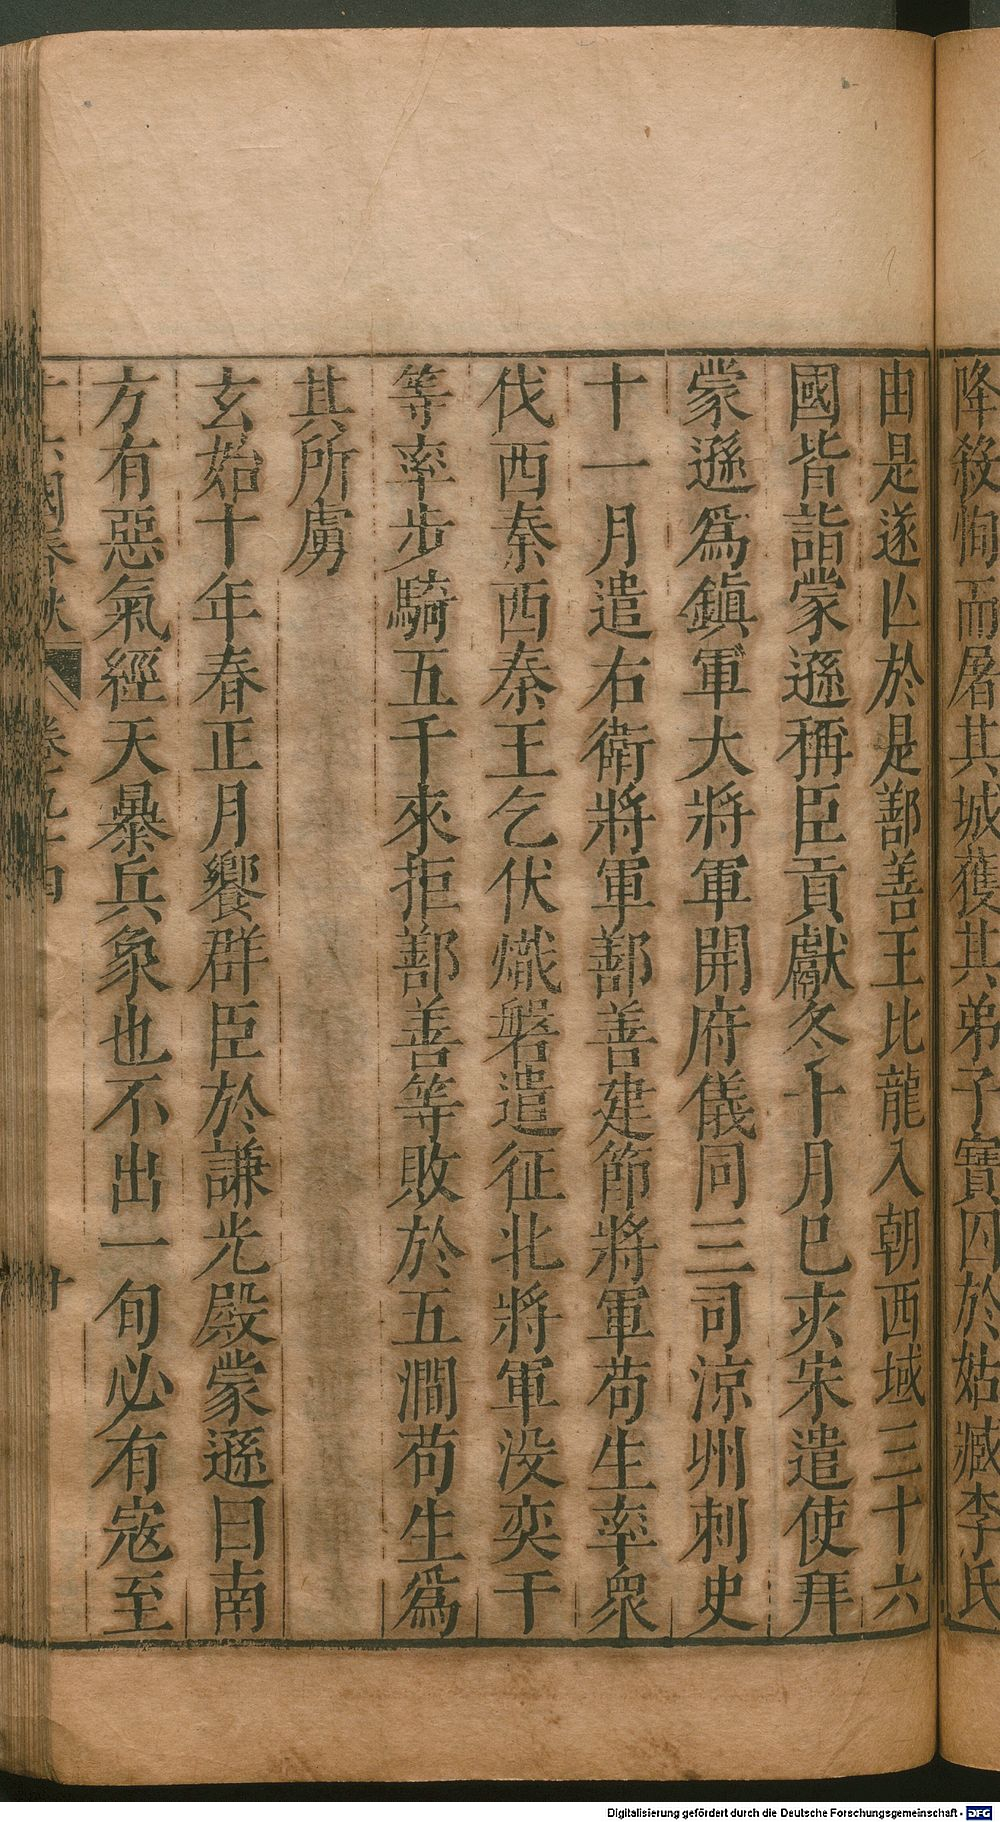 降殺恂而屠其城獲其弟子寶囚於姑臧李氏
由是遂亾於是鄯善王比龍入朝西域三十六
國皆詣蒙遜稱臣貢獻冬十月巳亥宋遣使拜
蒙遜爲鎭軍大將軍開府儀同三司涼州刺史
十一月遣右衛將軍鄯善建節將軍苟生率衆
伐西秦西秦王乞伏熾磐遣征北將軍没奕干
等率步騎五千來拒鄯善等敗於五澗苟生爲
其所虜
玄始十年春正月饗群臣於謙光殿蒙遜曰南
方有惡氣經天暴兵象也不出一旬必有寇至
國春秋
Digitalisierung gefördert durch die Deutsche Forschungsgemeinschaft - DFG